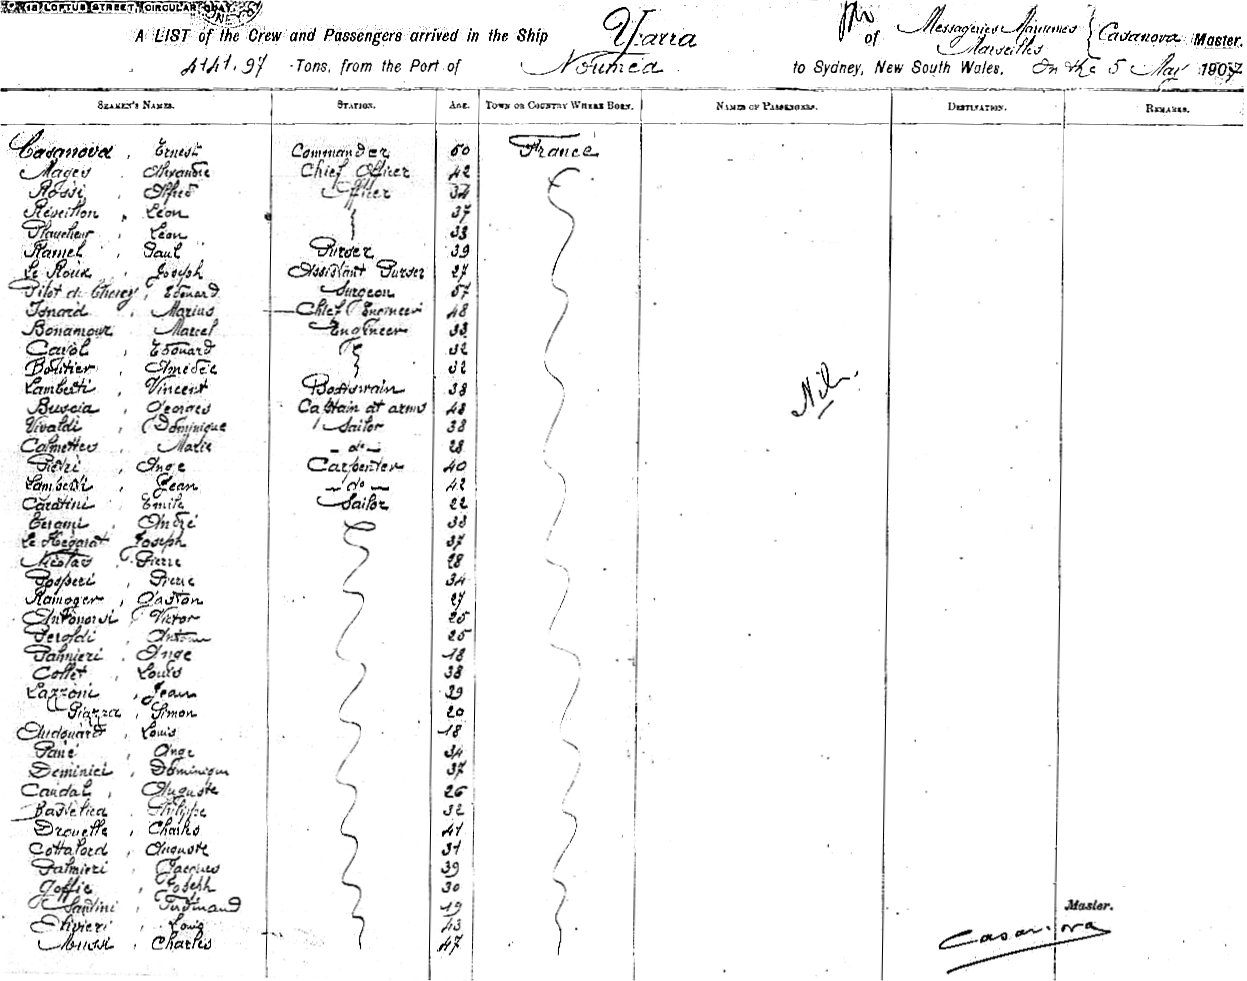 18 LOFTUS STREET, CIRCULAR QUAY,
A LIST of the Crew and Passengers arrived in the Ship Yarra of Messageries Maritimes Marseilles Casanova Master.
4141.97 Tons, from the Port of Noumea to Sydney, New South Wales, On the 5 May 1907
SEAMEN'S NAMES. STATION. AGE. TOWN OR COUNTRY WHERE BORN. NAMES OF PASSENGERS. DESTINATION. REMARKS.
Casanova, Ernest Commander 50 France
Mages Alexandre Chief Officer 42
Rossi, Alfred Officer 34
Réveillon, Léon 37
Léon 33
Ramel, Paul Purser 39
Le Roux, Joseph Assistant Purser 27
Pilot de Edouard Surgeon 57
Isnard, Marius Chief Engineer 48
Bonamour Marcel Engineer 33
Cavol, Edouard 32
Bouttier, Amédée 32
Lamberti, Vincent Boatswain 38
Buscia, Georges Captain at arms 48
Vivaldi, Dominique Sailor 38
Calmettes Marie do 28
Pietri, Ange Carpenter 40
Lamberti, Jean do 42
Caratini, Emile Sailor 22
André 38
Le Hégarat Joseph 37
Nicolas, Pierre 28
Posperi, Pierre 34
Ramoger, Gaston 27
Antonorsi Victor 25
Peroldi, Antoine 25
Palmieri, Ange 18
Collet, Louis 38
Lazzoni, Jean 29
Piazza, Simon 20
Audouard, Louis 18
Pané, Ange 34
Deminici, Dominique 37
Caudal, Auguste 26
Bastelica, Philippe 32
Drouette, Charles 41
Cottalord, Auguste 31
Palmieri, Jacques 39
Goffic, Joseph 30
Santini, Ferdinand 19
Olivieri, Louis 43
Mussi, Charles 47
Nil
Master.
Casanova